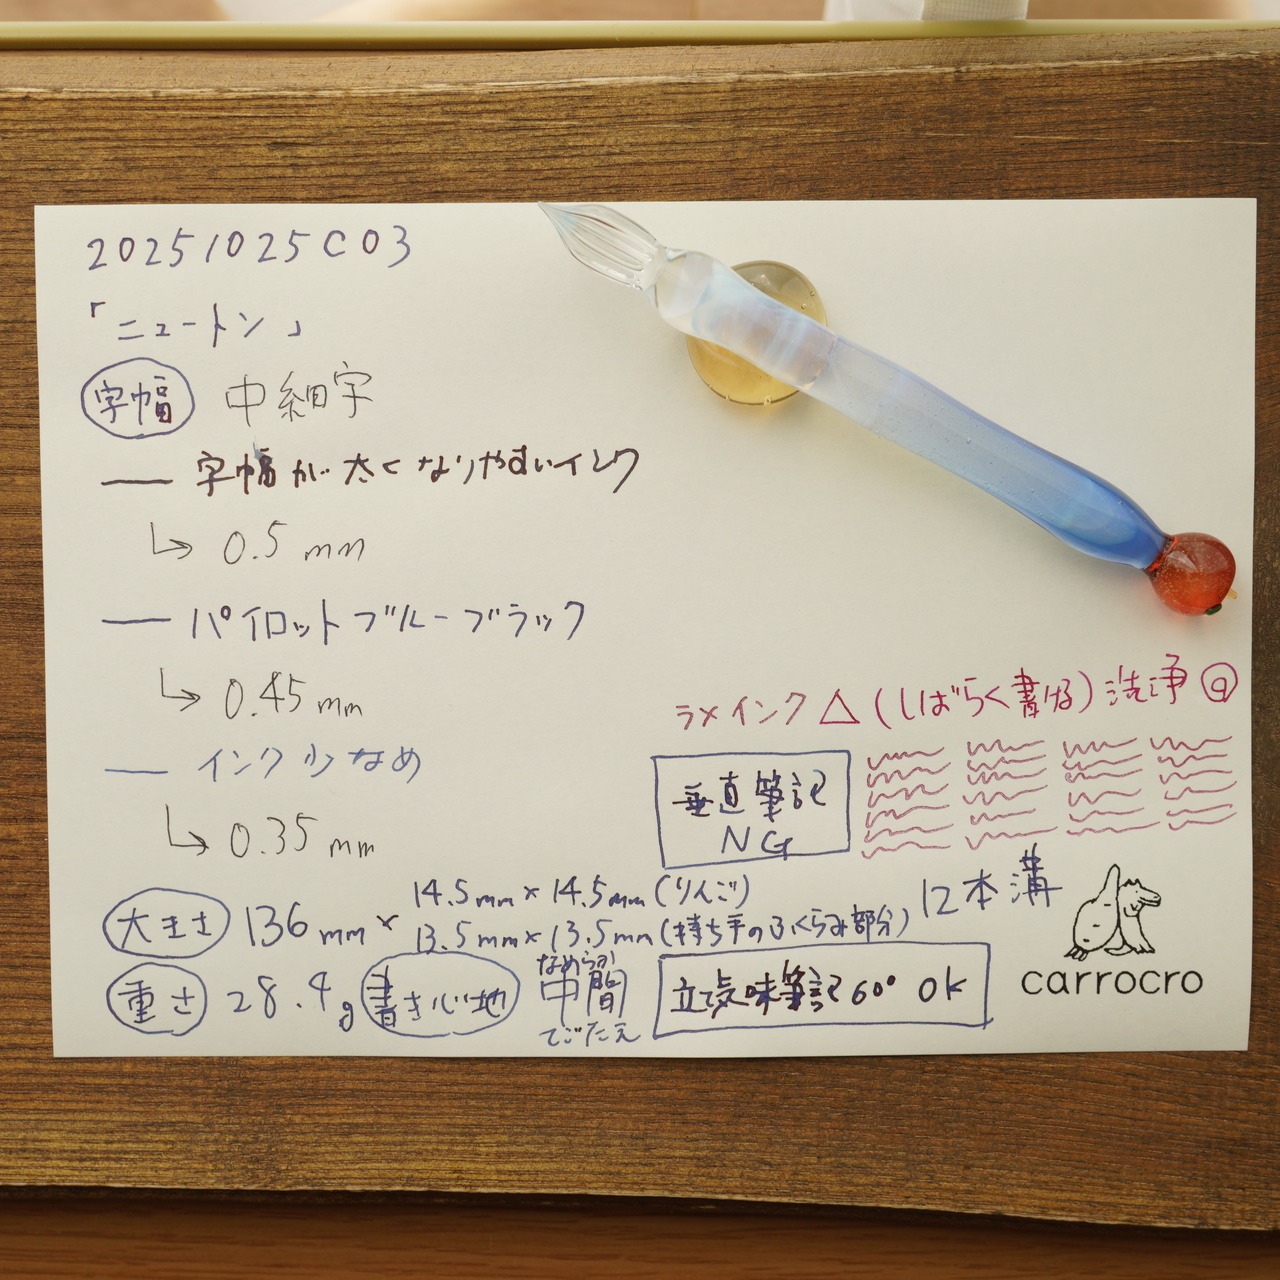 20251025C03
「ニュートン」
字幅 中細字
— 字幅が太くなりやすいインク
↳ 0.5mm
— パイロットブルーブラック
↳ 0.45mm
— インク少なめ
↳ 0.35mm
ラメインク△(しばらく書ける)洗浄◎
垂直筆記
NG
大きさ 136mm×
14.5mm×14.5mm(りんご)
13.5mm×13.5mm(持ち手のふくらみ部分)
12本溝
重さ 28.4g
書き心地
なめらか
中間
てごたえ
立気味筆記60°OK
carrocro